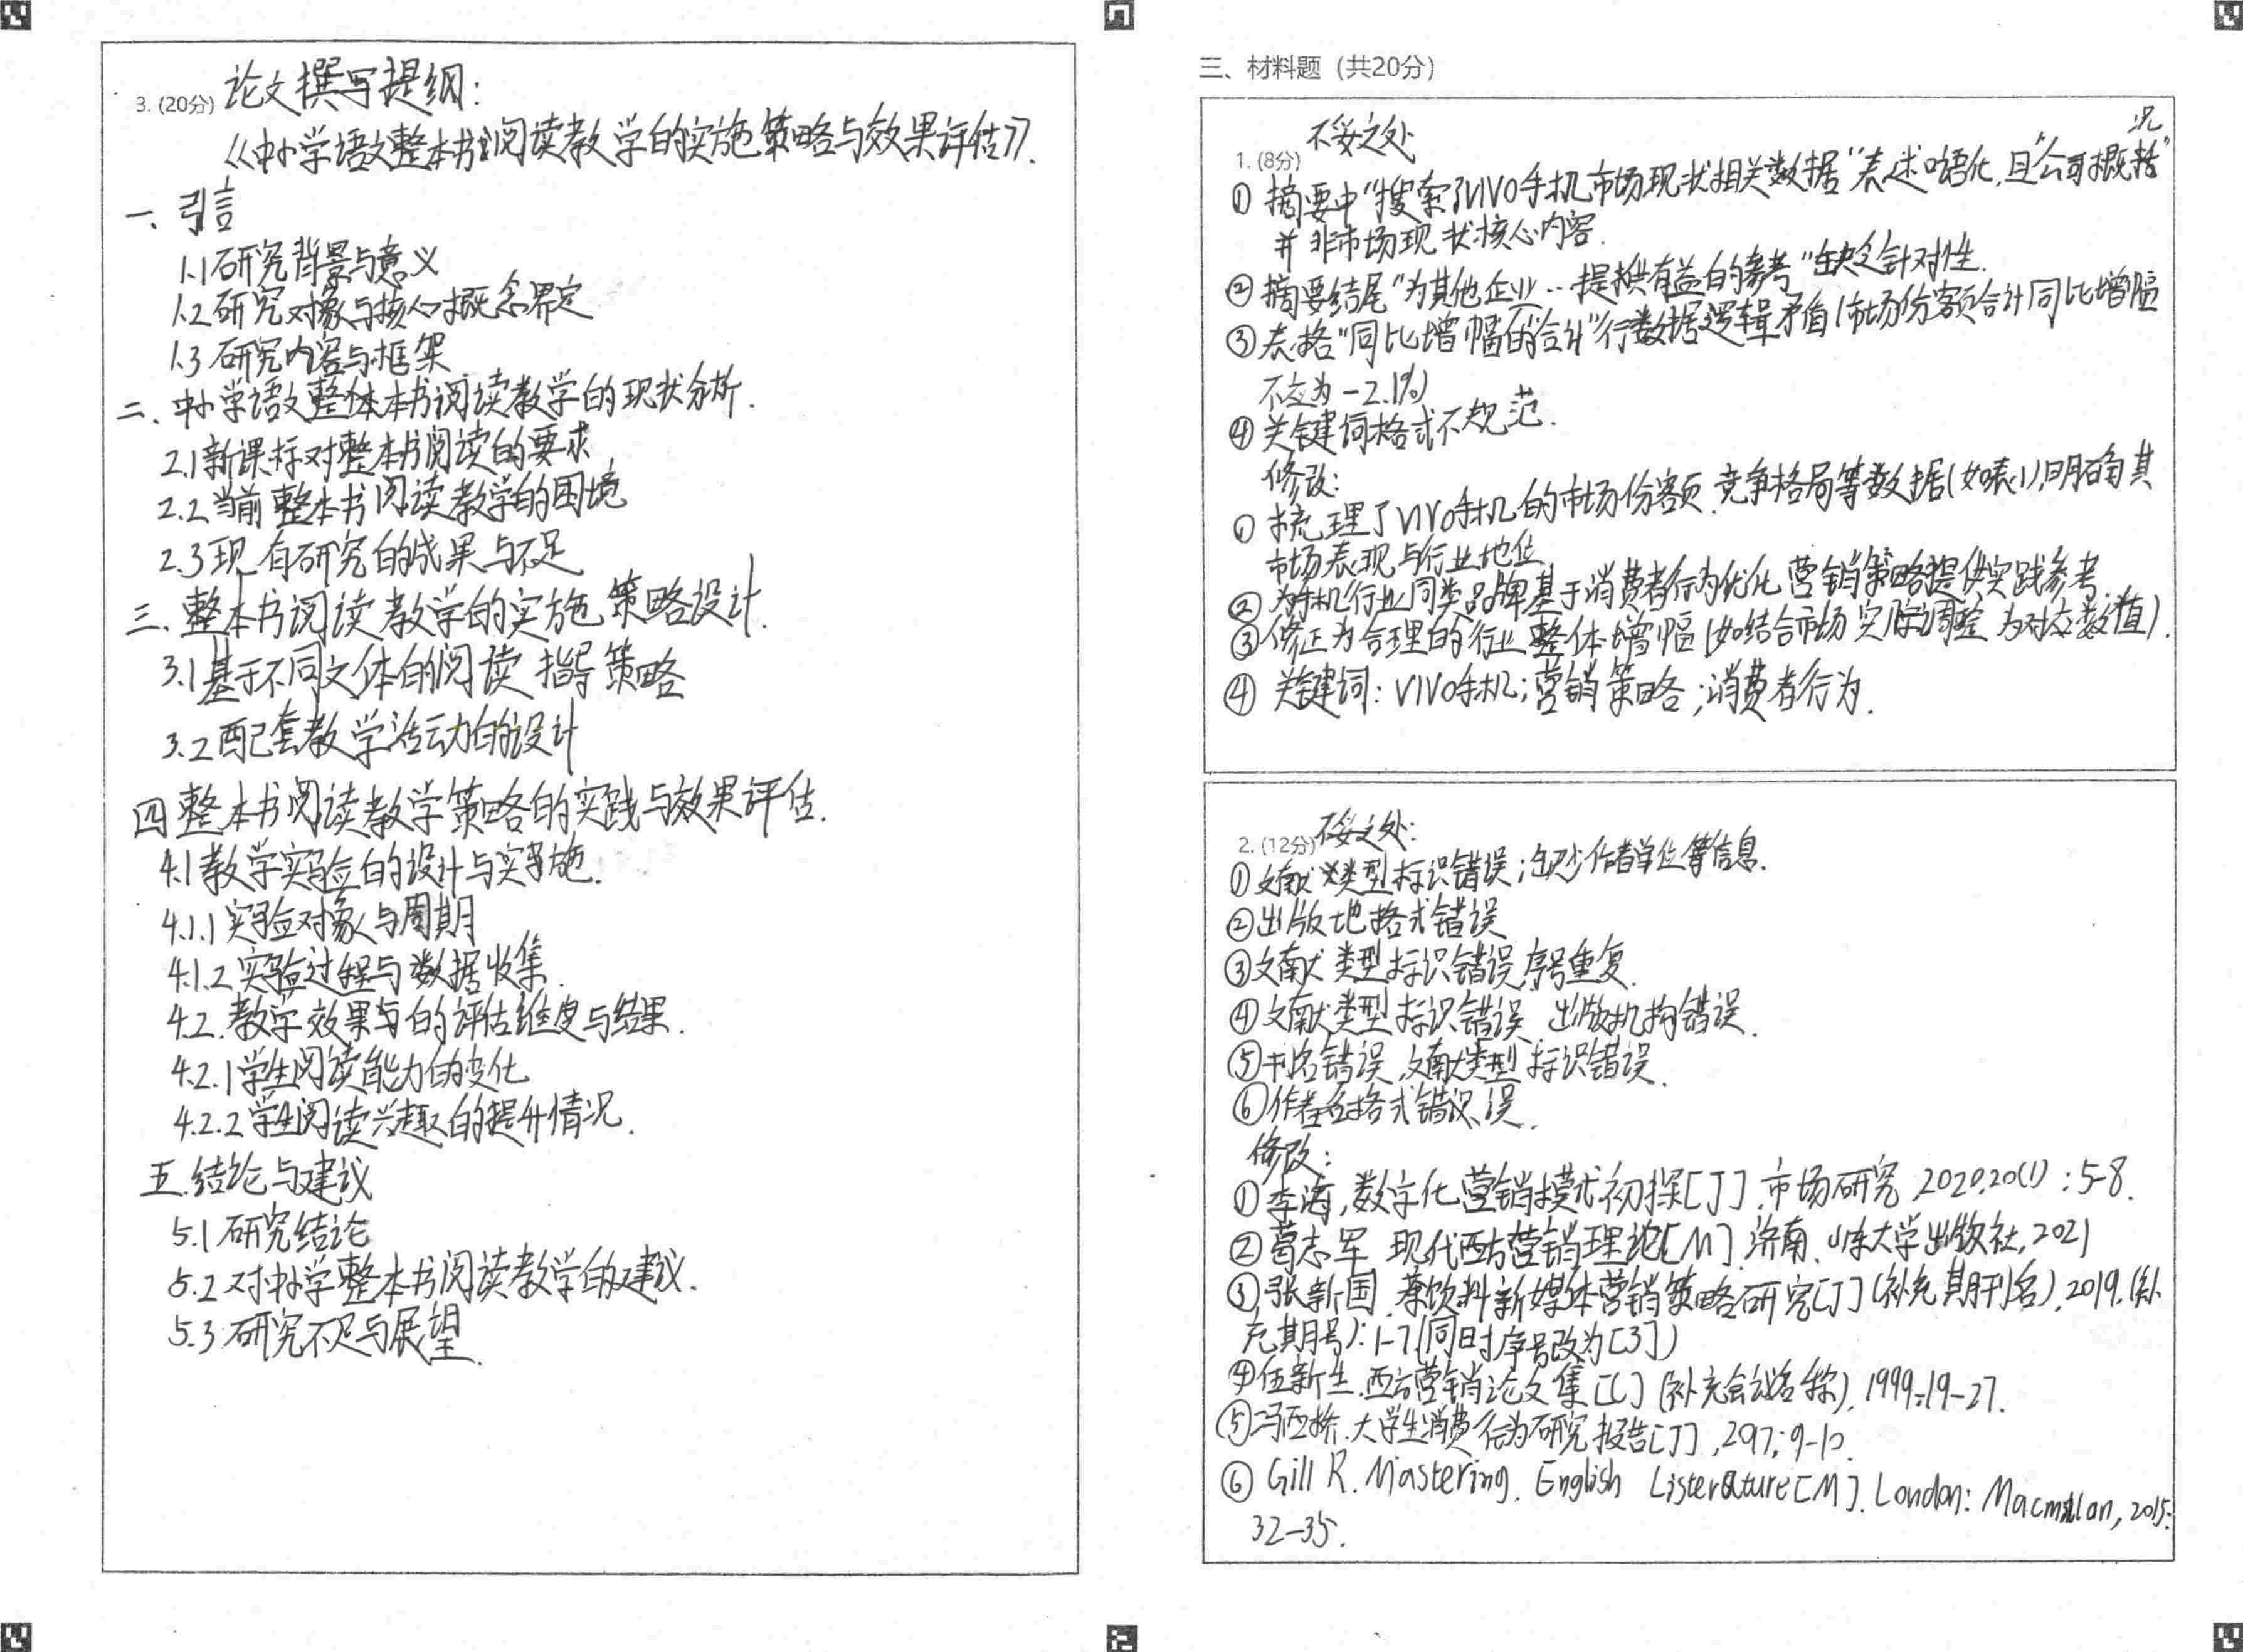 3. (20分) 论文撰写提纲：
《中小学语文整本书阅读教学的实施策略与效果评估》.
一、引言
1.1 研究背景与意义
1.2 研究对象与核心概念界定
1.3 研究内容与框架
二、中小学语文整体本书阅读教学的现状分析.
2.1 新课标对整本书阅读的要求
2.2 当前整本书阅读教学的困境
2.3 现有研究的成果与不足
三、整本书阅读教学的实施策略设计.
3.1 基于不同文体的阅读指导策略
3.2 配套教学活动的设计
四 整本书阅读教学策略的实践与效果评估.
4.1 教学实验的设计与实施.
4.1.1 实验对象与周期
4.1.2 实验过程与数据收集.
4.2. 教学效果的评估维度与结果.
4.2.1 学生阅读能力的变化
4.2.2 学生阅读兴趣的提升情况.
五.结论与建议
5.1 研究结论
5.2 对中小学整本书阅读教学的建议.
5.3 研究不足与展望.
三、材料题（共20分）
1. (8分) 不妥之处
① 摘要中"搜索了VIVO手机市场现状相关数据"表述口语化,且"公司概括况"
并非市场现状核心内容.
② 摘要结尾"为其他企业…提供有益的参考"缺乏针对性.
③ 表格"同比增幅的"合计"行数据逻辑矛盾(市场份额合计同比增幅
不应为-2.1%)
④ 关键词格式不规范.
修改:
① 梳理了VIVO手机的市场份额、竞争格局等数据(如表1),明确其
市场表现与行业地位
② 为手机行业同类品牌基于消费者行为优化营销策略提供实践参考.
③ 修正为合理的行业整体增幅(如结合市场实际调整为对应数值).
④ 关键词: VIVO手机;营销策略;消费者行为.
2. (12分) 不妥之处:
① 文献类型标识错误;缺少作者单位等信息.
② 出版地格式错误
③ 文献类型标识错误,序号重复.
④ 文献类型标识错误、出版机构错误.
⑤ 刊名错误,文献类型标识错误.
⑥ 作者名格式错误.
修改:
① 李海,数字化营销模式初探[J].市场研究,2020,20(1):5-8.
② 葛志军 现代西方营销理论[M].济南.山东大学出版社,2021
③ 张新国.茶饮料新媒体营销策略研究[J](补充期刊名).2019.(补
充期号):1-7(同时序号改为[3])
④ 伍新生.西方营销论文集[C](补充会议名称).1999:19-27.
⑤ 冯西桥.大学生消费行为研究报告[J],2017:9-10.
⑥ Gill R. Mastering. English Listerature[M]. London: Macmillan, 2015:
32-35.